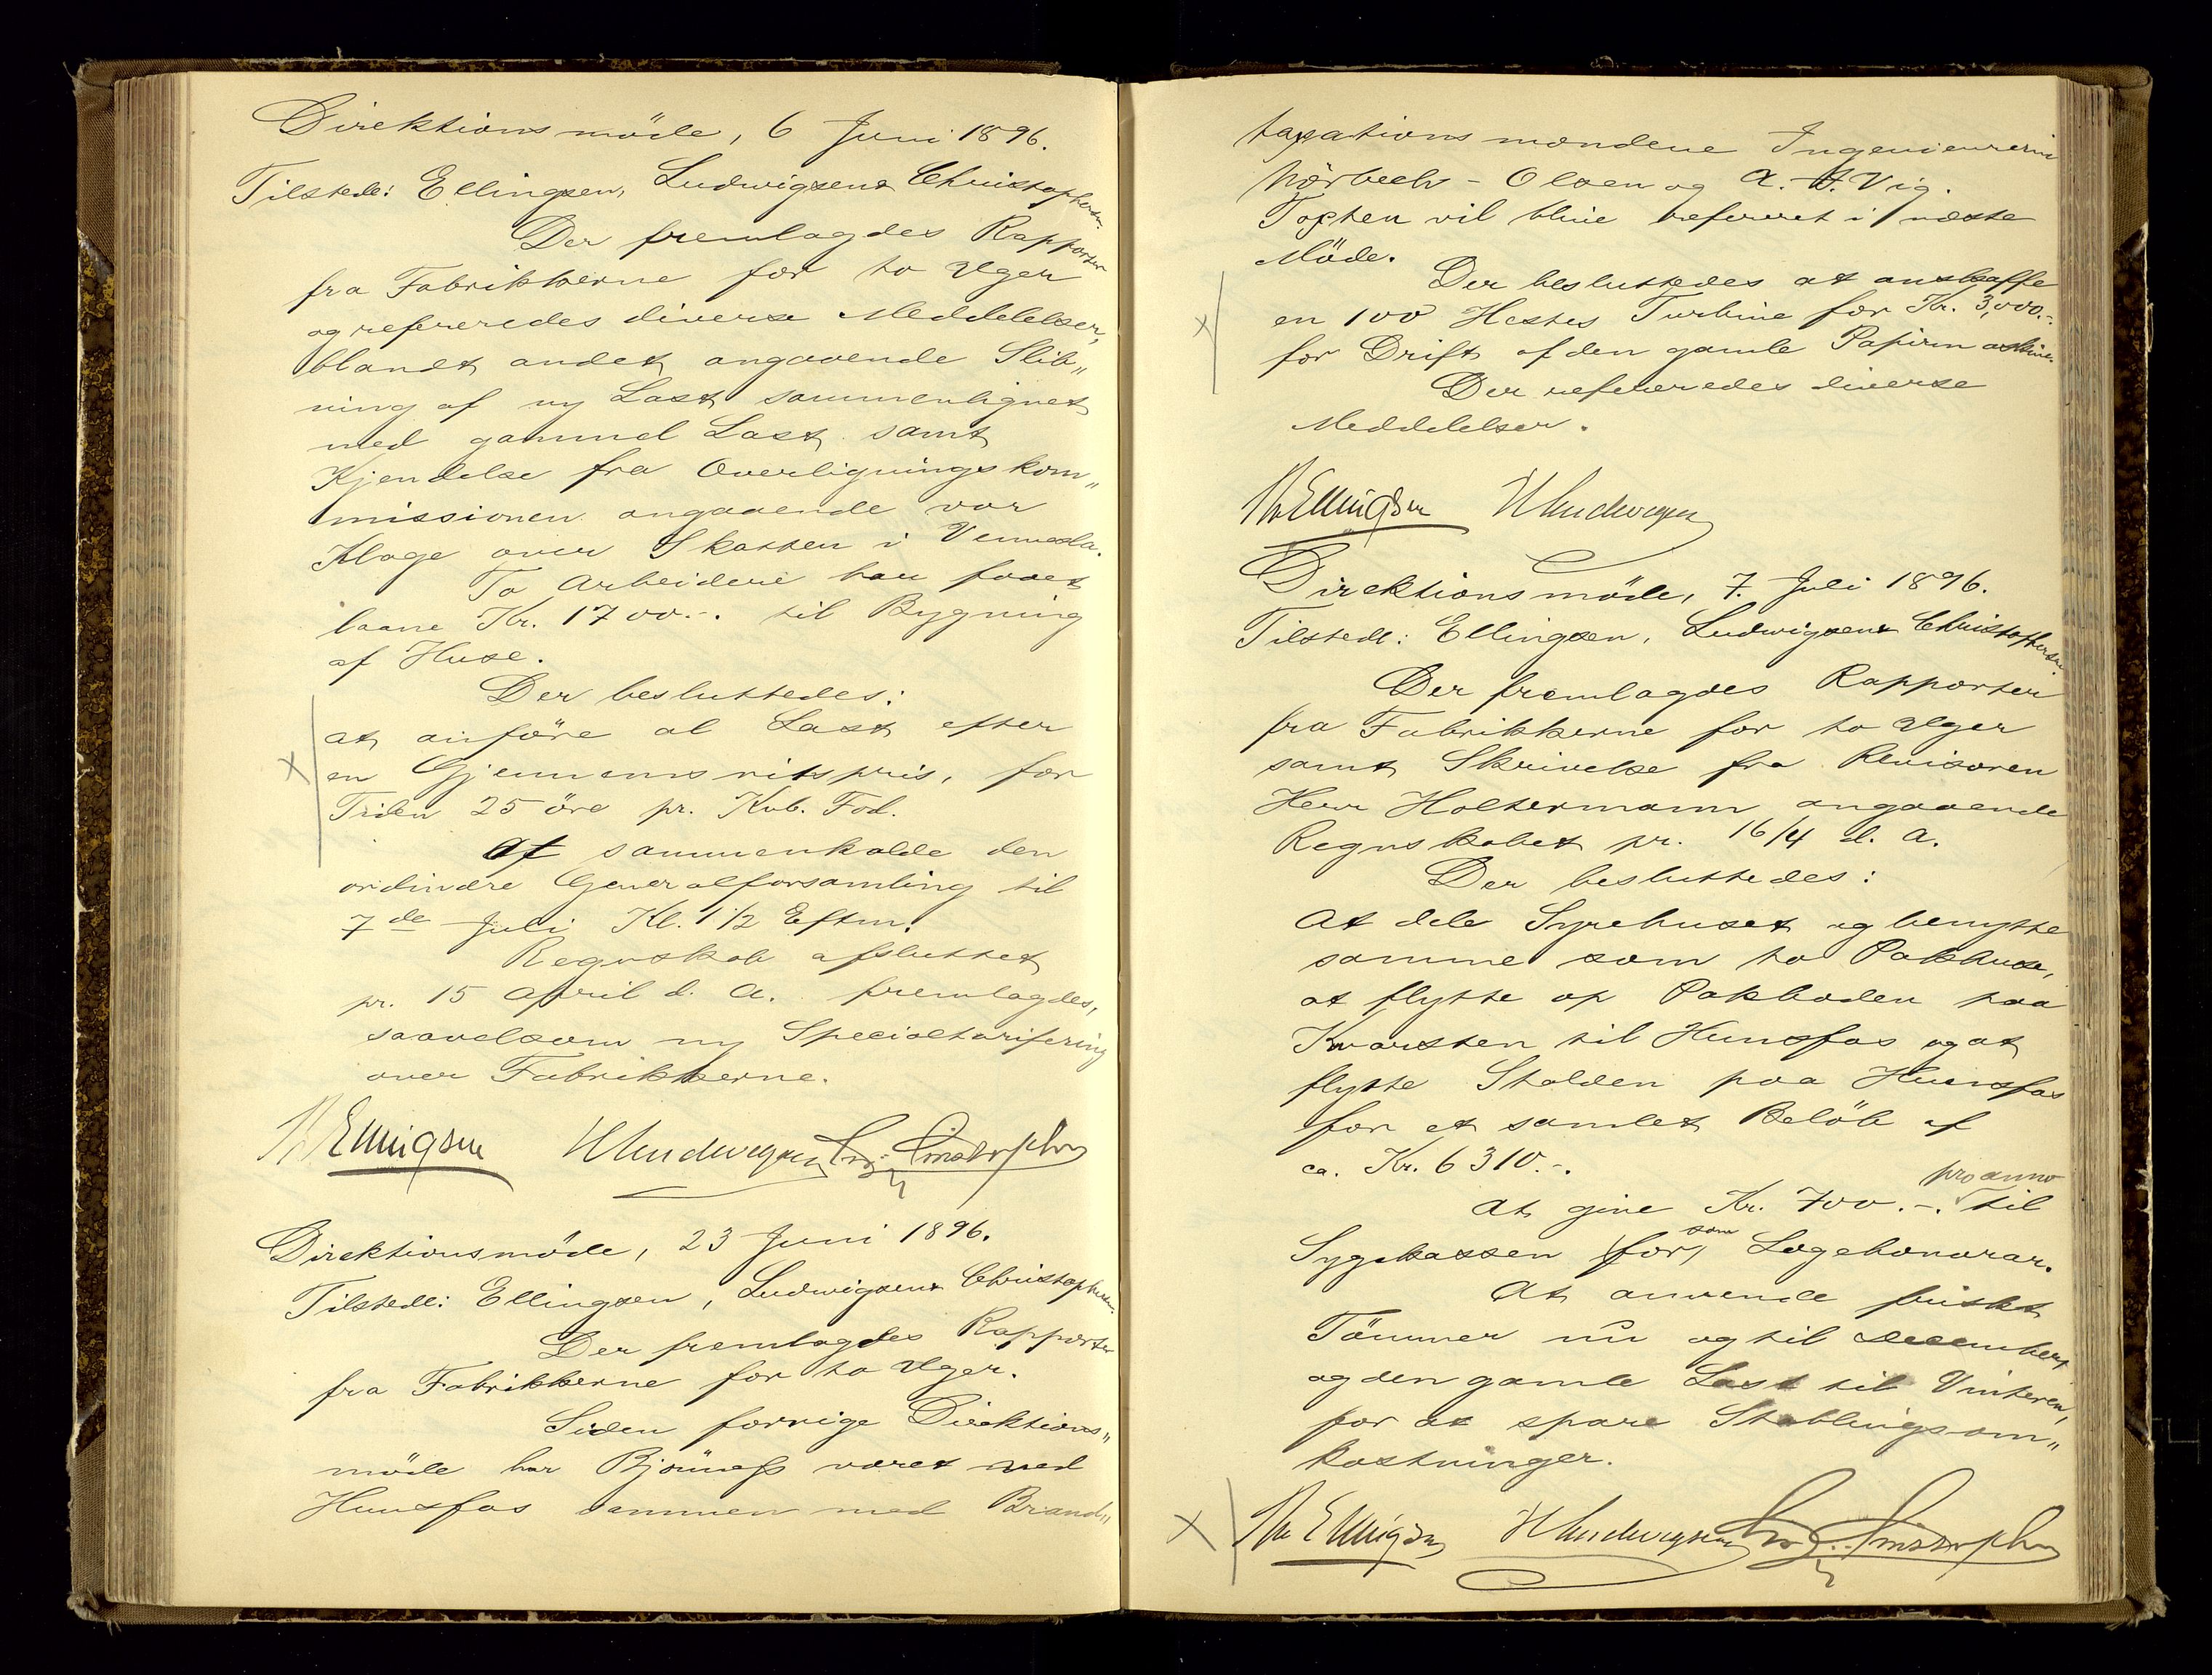 Direktionsmöde, 6 Juni 1896.
Tilstede: Ellingsen, Ludwigsen & Christophersen.
Der fremlagdes Rapporter
fra Fabrikkerne for to Uger
og refereredes diverse Meddelelser,
blandt andet angaaende Slib„
ning af ny Last sammenlignet
med gammel Last samt
Kjendelse fra Overligningskom„
missionen angaaende vor
Klage over Skatten i Vennesla.
To Arbeidere har faaet
laane Kr. 1700.-. til Bygning
af Huse.
Der besluttedes:
at anföre al Last efter
en Gjennemsnitspris, for
Tiden 25 öre pr. Kub. Fod.
At sammenkalde den
ordinære Generalforsamling til
7de Juli Kl. 1 1/2 Eftm.
Regnskab afsluttet
pr. 15 April d. A. fremlagdes,
saavelsom ny Specialtarifering
over Fabrikkerne.
Ellingsen HLudwigsen Christophersen
Direktionsmöde, 23 Juni 1896.
Tilstede: Ellingsen, Ludwigsen & Christophersen.
Der fremlagdes Rapporter
fra Fabrikkerne for to Uger.
Siden forrige Direktions„
möde har Björness været ved
Hunsfos sammen med Brand„
taxationsmændene Ingeniørerne
Nörbech-Olsen og A. Vig.
Taxten vil blive refereret i næste
Möde.
Der besluttedes at anskaffe
en 100 Hestes Turbine for Kr. 3,000.-.
for Drift af den gamle Papirmaskine.
Der refereredes diverse
Meddelelser.
Ellingsen HLudwigsen
Direktionsmöde, 7. Juli 1896.
Tilstede: Ellingsen, Ludwigsen & Christophersen
Der fremlagdes Rapporter
fra Fabrikkerne for to Uger
samt Skrivelse fra Revisoren
Herr Holtermann angaaende
Regnskabet pr. 16/4 d. A.
Der besluttedes:
At dele Syrehuset og benytte
samme som to Pakhuse,
at flytte op Pakboden paa
Kvarsten til Hunsfos og at
flytte Stalden paa Hunsfos
for et samlet Belöb af
ca. Kr. 6310.-.
At give Kr. 700.-. pro anno til
Sygekassen for som Lægehonorar.
At anvende friskt
Tömmer nu og til December,
og den gamle Last til Vinteren,
for at spare Stablingsom„
kostninger.
Ellingsen HLudwigsen Christophersen